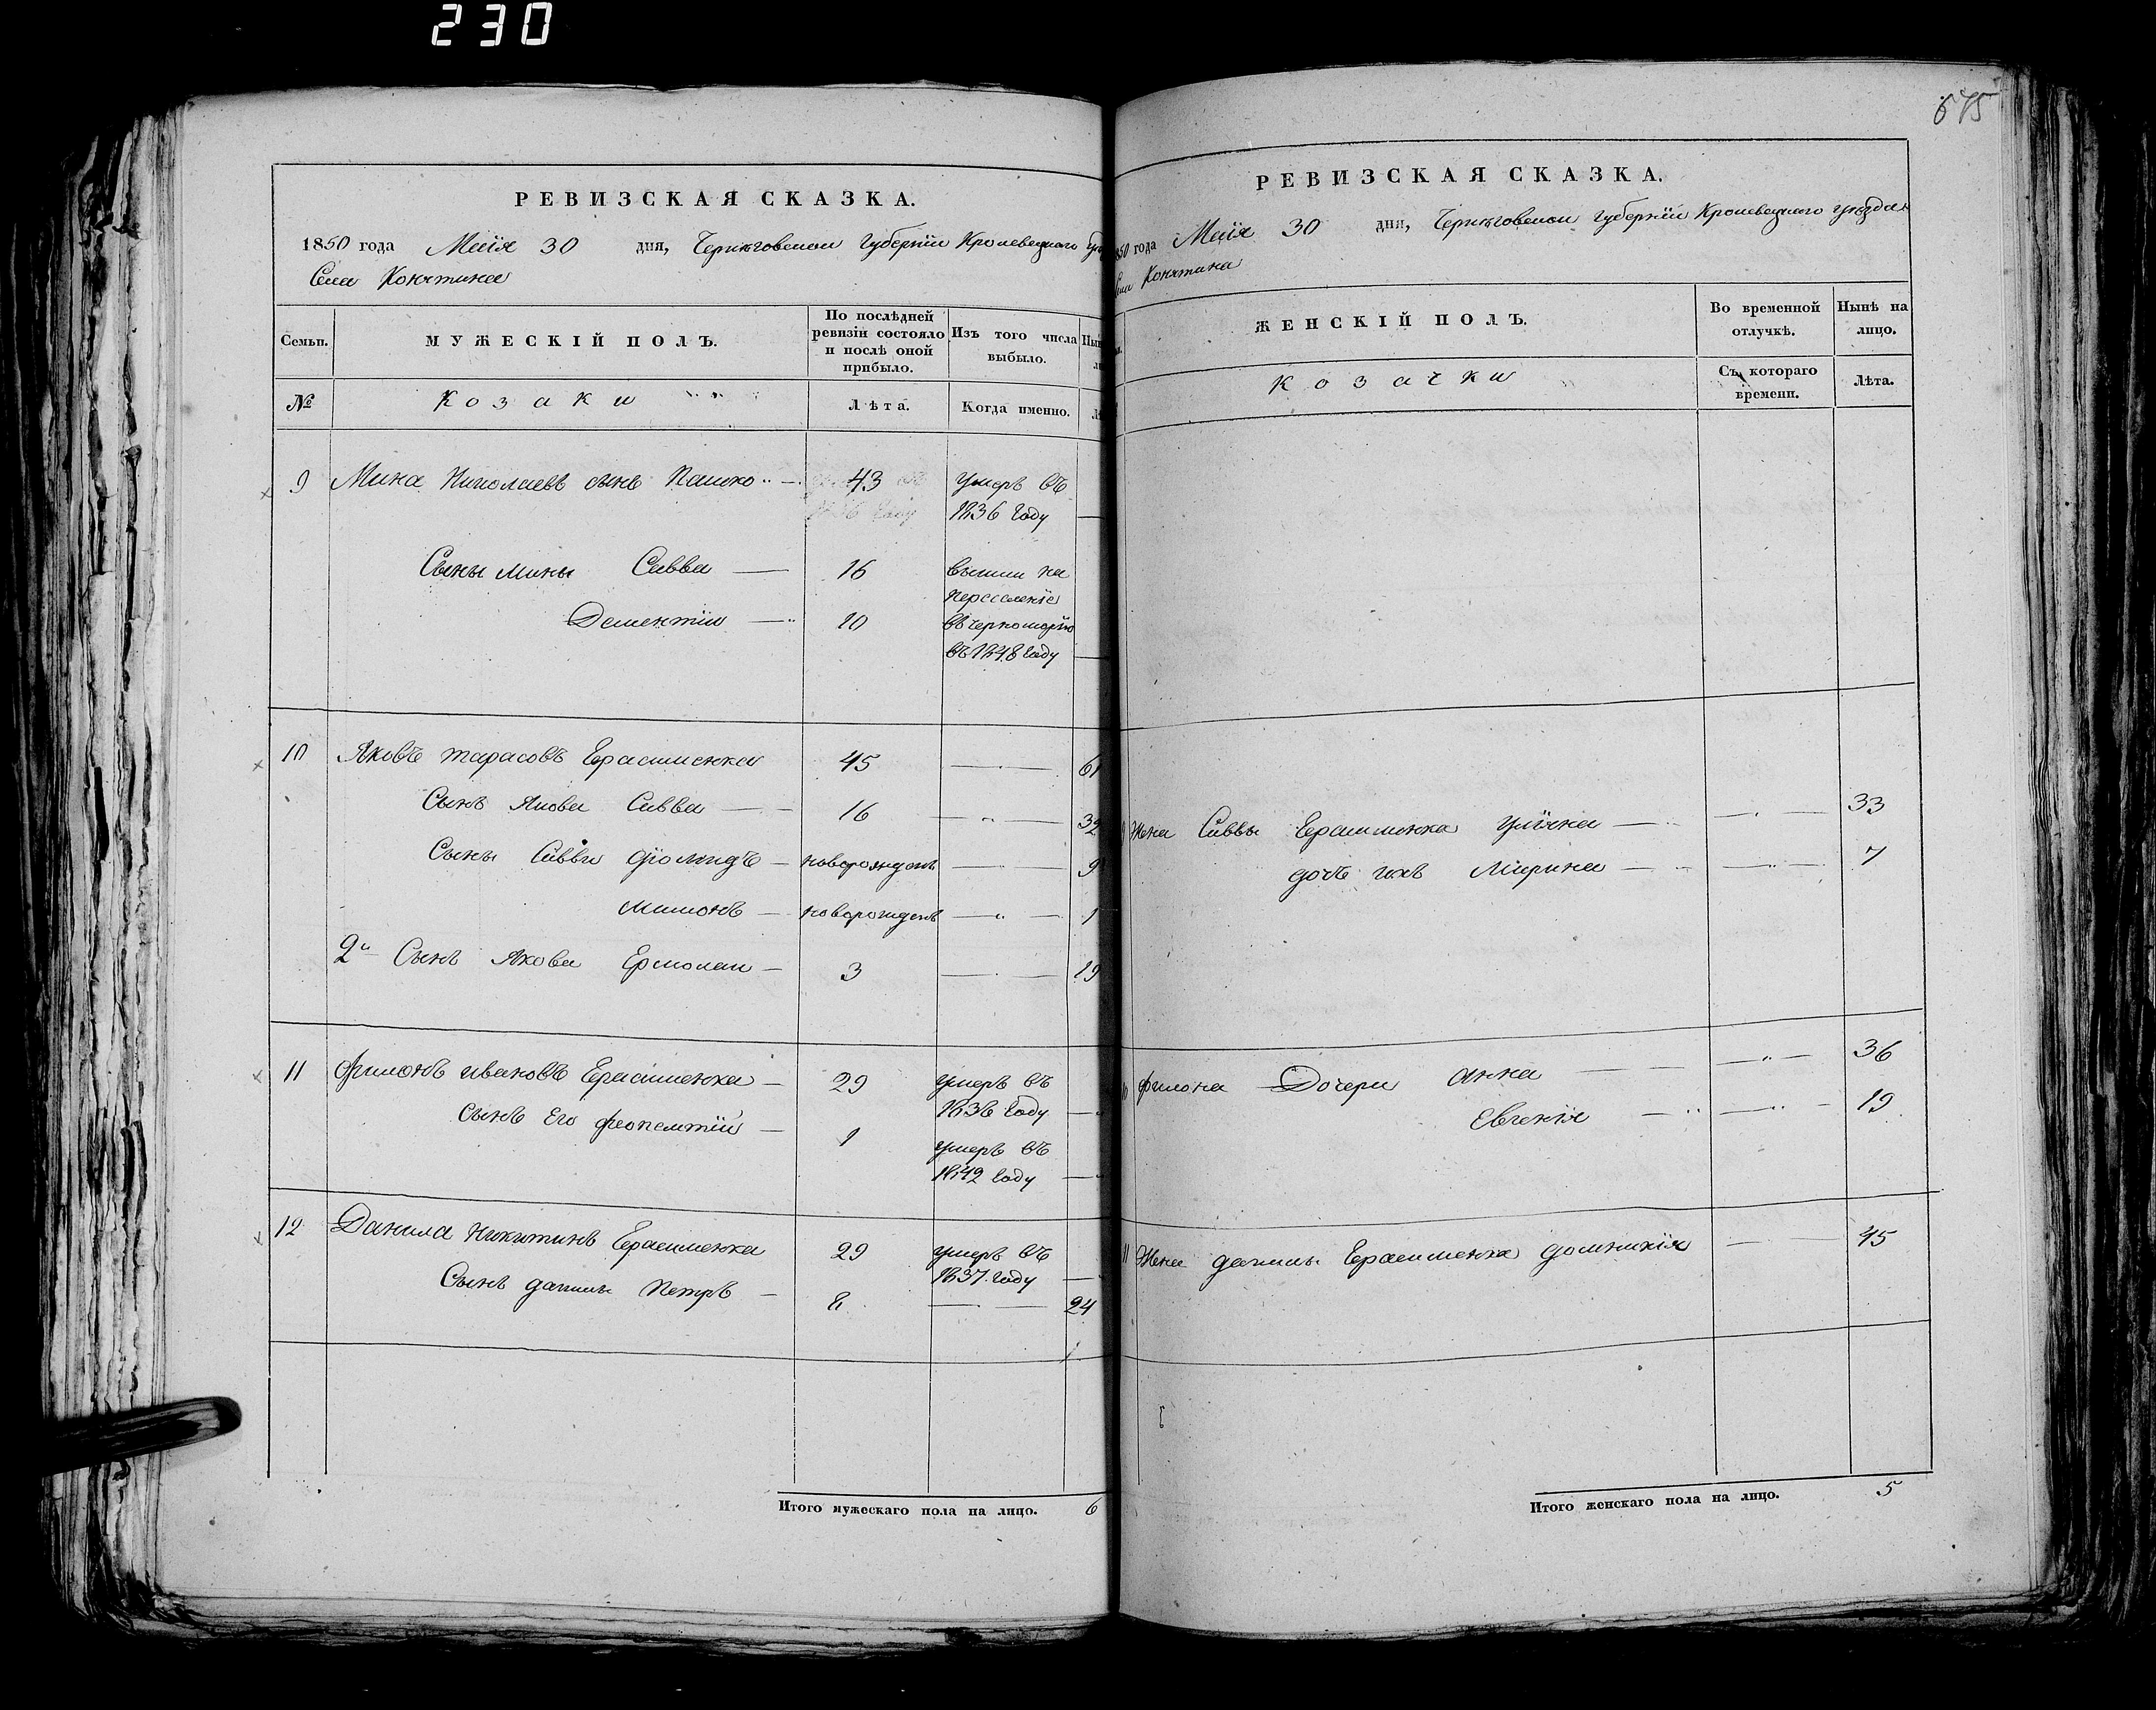 230
РЕВИЗСКАЯ СКАЗКА.
1850 года Маія 30 дня, Черниговской Губерніи Кролевецкаго
Села Конятина
Семьи.
МУЖЕСКІЙ ПОЛЪ.
По послѣдней ревизіи состояло и послѣ оной прибыло.
Изъ того числа выбыло.
№
Козаки
Лѣта.
Когда именно.
9 Мина Николаевъ сынъ Пашко 43 умеръ въ
1836 году
Сыны Мины Савва 16 вышли на
переселеніе
Дементій 10 въ черноморію
въ 1848 году
10 Яковъ Тарасовъ Ерасименко 45 61
Сынъ Якова Савва 16 32
Сыны Саввы новорожденъ 9
новорожденъ 1
2й Сынъ Якова Ермолай 3 19
11 Филонъ Ивановъ Ерасименко 29 умеръ въ
1836 году
Сынъ Его 1 умеръ въ
1842 году
12 Данила Никитинъ Ерасименко 29 умеръ въ
1837 году
Сынъ данилы Петръ 8 24
Итого мужескаго пола на лицо. 6
675
РЕВИЗСКАЯ СКАЗКА.
850 года Маія 30 дня, Черниговской Губерніи Кролевецкаго уѣзда
Села Конятина
ЖЕНСКІЙ ПОЛЪ.
Во временной отлучкѣ.
Нынѣ на лицо.
Козачки
Съ котораго времени.
Лѣта.
Жена Саввы Ерасименка 33
дочь ихъ Марина 7
Филона Дочери анна 36
Евгенія 19
11 Жена данилы Ерасименка домникія 45
Итого женскаго пола на лицо. 5